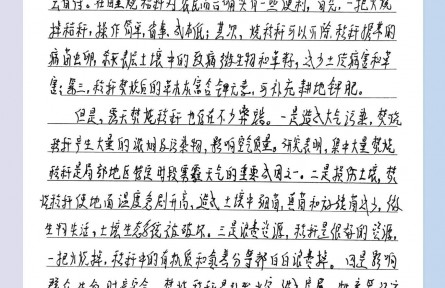 去直接。在田里烧秸秆对农民而言确实有一些便利,首先,一把火烧
掉秸秆,操作简单,省事,成本低;其次,烧秸秆可以灭除秸秆携带的
病菌虫卵,杀死表层土壤中的有病微生物和草籽,减少土传病害和草
害;第三,秸秆焚烧后的草木灰富含钾元素,可补充耕地钾肥。
但是,露天焚烧秸秆也存在不少弊端。一是造成大气污染,焚烧
秸秆产生大量的浓烟及污染物,影响空气质量。研究表明,集中大量焚烧
秸秆是局部地区特定时段雾霾天气的重要成因之一。二是损伤土壤,焚
烧秸秆使地面温度急剧升高,造成土壤中细菌,真菌和放线菌减少,微
生物生活,土壤生态系统被破坏。三是浪费资源,秸秆是很好的资源,
一把火烧掉,秸秆中的有机质和氮素养分等都白白浪费掉。四是影响
群众生命财产安全。焚烧秸秆易引发火灾